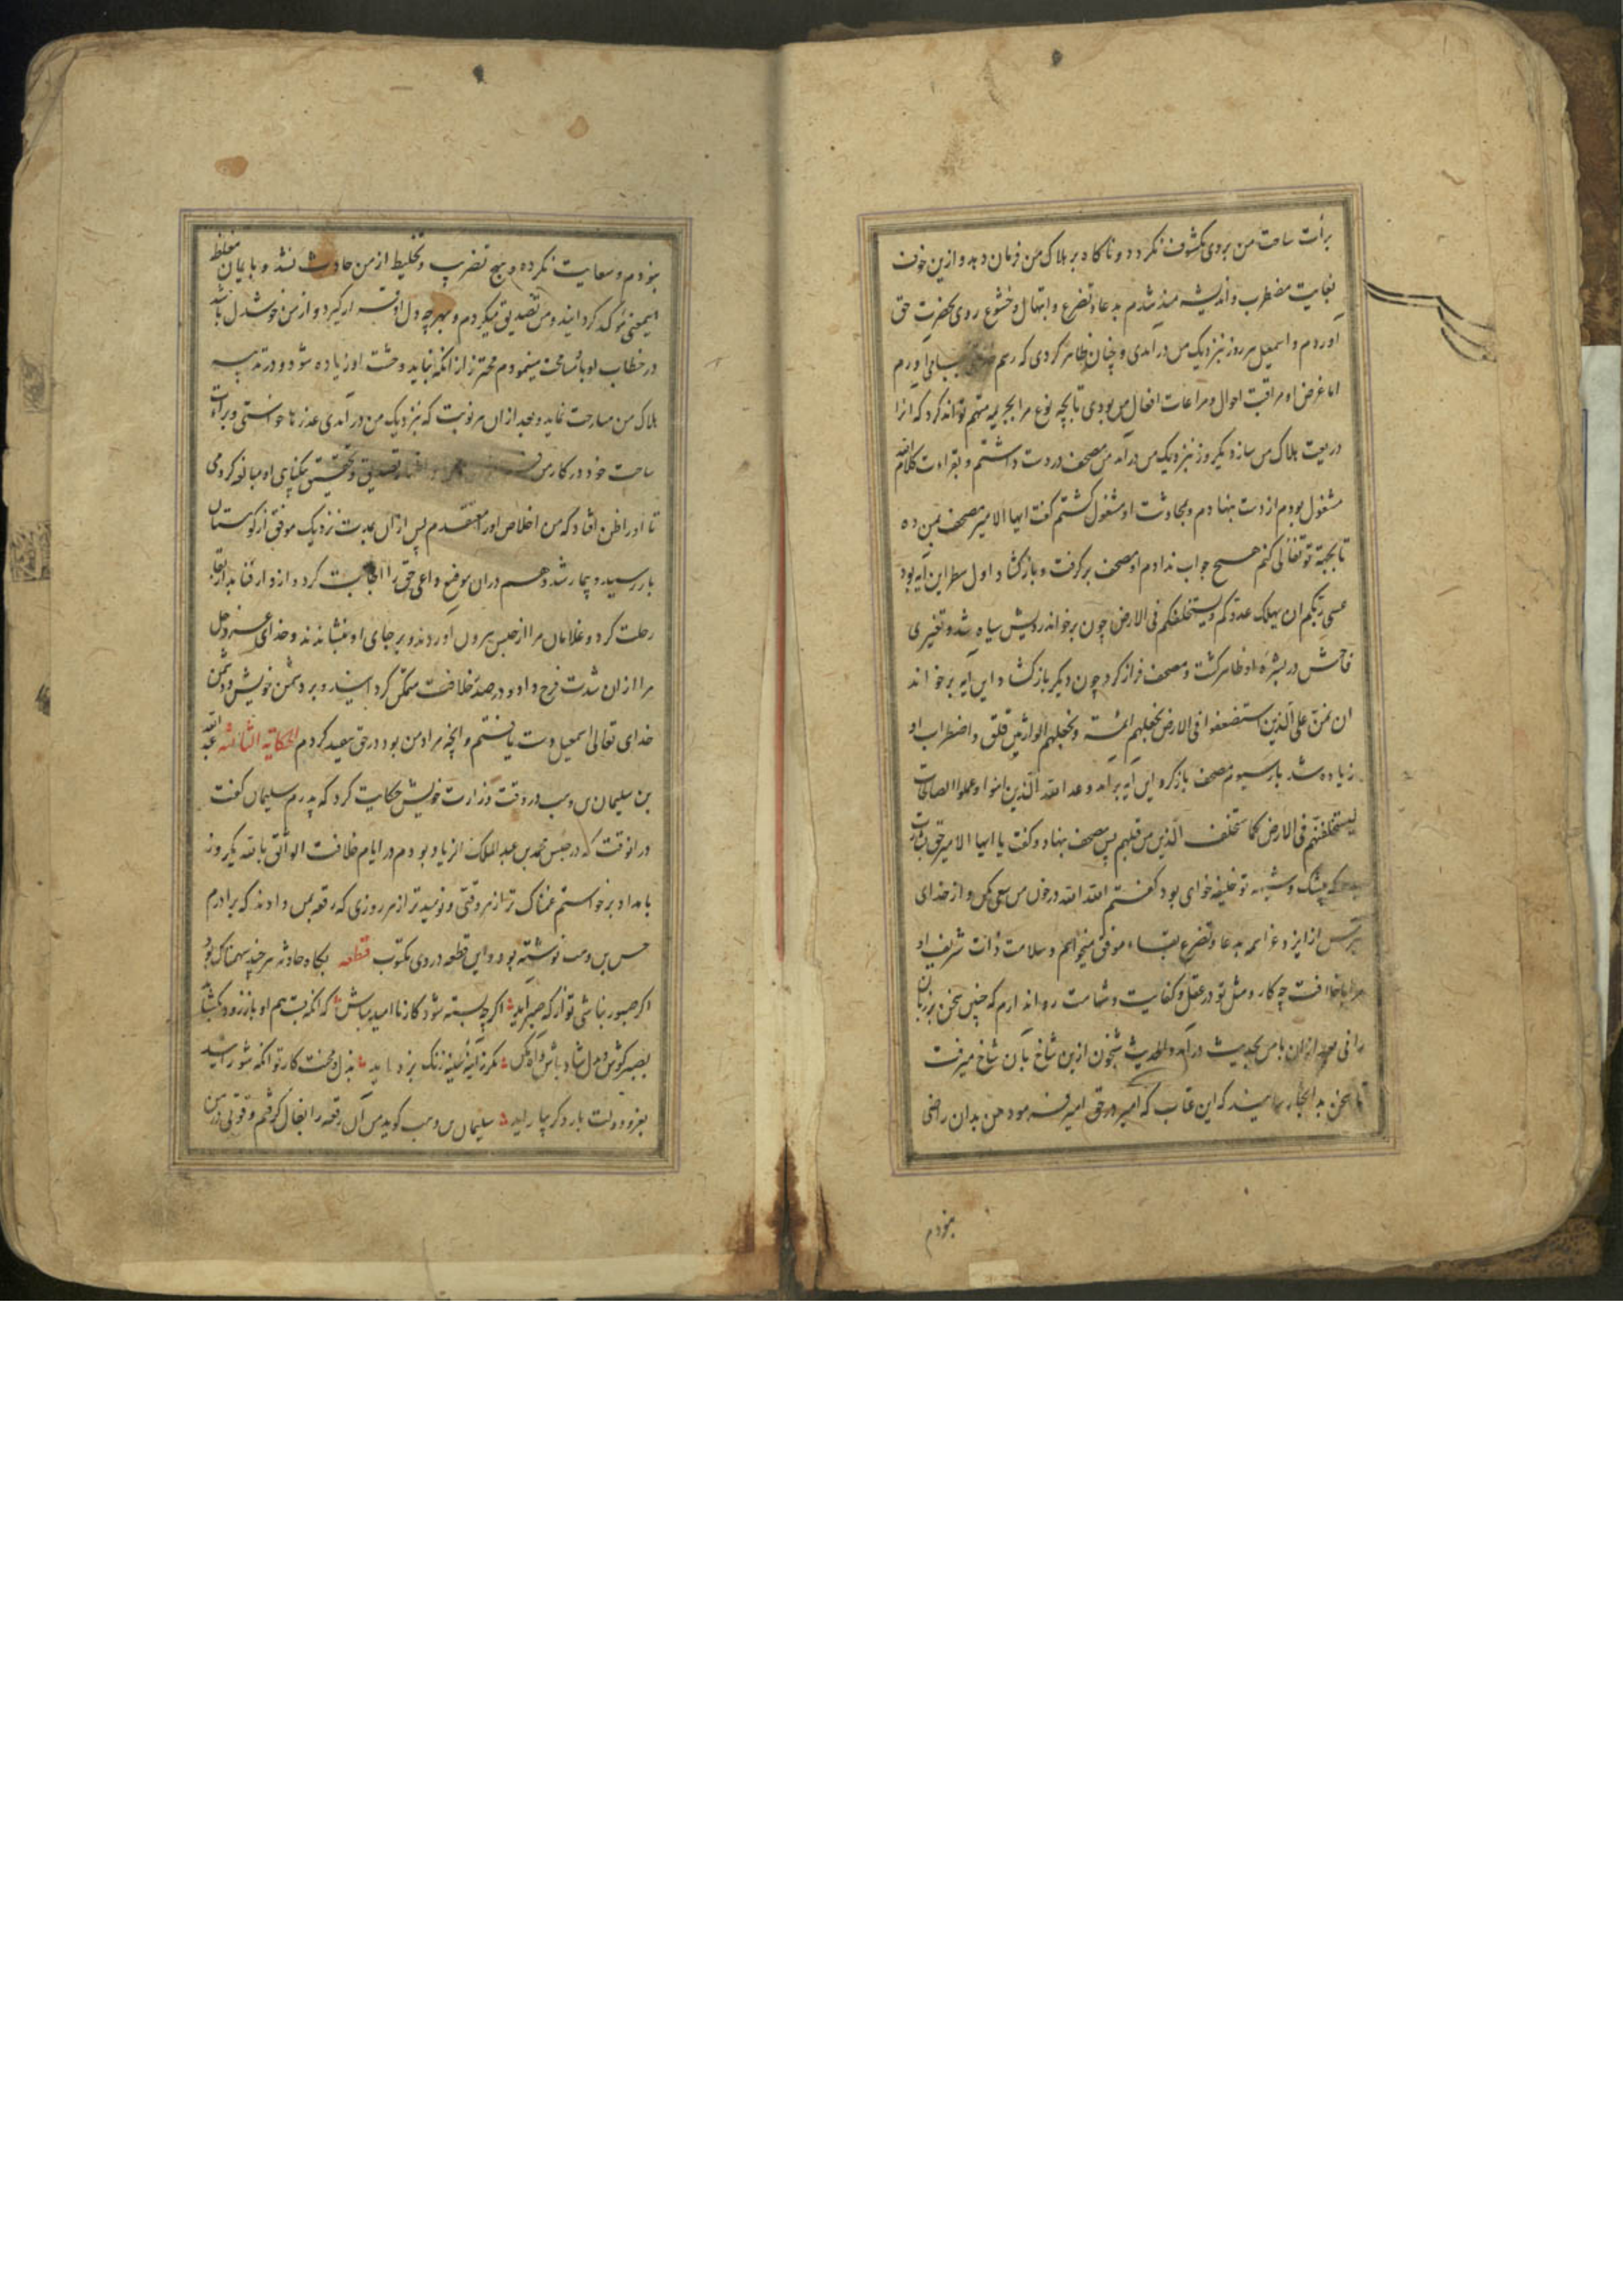 برأت ساحت من بروی مکشوف نکردد و ناکاه بر هلاک من فرمان دهد و ازین خوف
بغایت مضطرب و اندیشه مند شدم بدعا و تضرع و ابتهال و خشوع روی بحضرت حق
اوردم و اسمعیل هر روز بنزدیک من درآمدی و چنان ظاهر کردی که رسم بجای اورم
اما غرض او مراقبت احوال و مراعات افعال من بودی تا بچه نوع مرا بجریمه متهم تواند کرد که انرا
ذریعت هلاک من سازد یکروز بنزدیک من درآمد من مصحف در دست داشتم و بقراءت کلام الله
مشغول بودم از دست بنهادم و بمحادثت او مشغول کشتم کفت ایها الامیر مصحف بمن ده
تا بجهة تو تفألی کنم هیچ جواب ندادم او مصحف برکرفت و بازکشاد اول سطر این ایه بود
عسی ربکم ان یهلک عدوکم ویستخلفکم فی الارض چون برخواند رویش سیاه شد و تغیری
فاحش در بشره او ظاهر کشت و مصحف فراز کرد چون دیکر بازکشاد این ایه برخواند
ان نمن علی الذین استضعفوا فی الارض ونجعلهم ائمة ونجعلهم الوارثین قلق و اضطراب او
زیاده شد بار سیوم مصحف باز کرد این آیه برآمد وعد الله الذین امنوا وعملوا الصالحات
لیستخلفنهم فی الارض کما استخلف الذین من قبلهم پس مصحف بنهاد و کفت یا ایها الامیر بحق بشارت
که بیشک و شبهه تو خلیفه خواهی بود کفتم الله الله در خون من سعی مکن و از خدای
بترس از ایزد عز اسمه بدعا و تضرع بقاء موفق میخواهم و سلامت ذات شریف او
مرا با خلافت چه کار و مثل تو در عقل و کفایت و شهامت روا ندارم که چنین سخن بر زبان
رانی بعد ازان با من بحدیث درآمد و الحدیث شجون ازین شاخ بآن شاخ میرفت
تا سخن بدانجا رسانید که این عتاب که امیر در حق امیر فرمود من بدان راضی
نبودم
نبودم و سعایت نکرده و هیچ تضریب و تخلیط از من حادث نشد و بایمان مغلظ
این معنی مؤکد کردانید و من تصدیق میکردم و بهر چه دل او قرار کیرد و از من خوشدل باشد
در خطاب او بانسامحت مینمودم محترز از انکه نباید وحشت او زیاده شود و در تدبیر
هلاک من مسارعت نماید و بعد ازان هر نوبت که بنزدیک من درآمدی عذرها خواستی و براءت
ساحت خود در کار من تصدیق و تحقیق بیکناهی او مبالغه کردمی
تا اورا ظن افتاد که من اخلاص اورا معتقدم پس ازان بمدت نزدیک موفق از کوهستان
باز رسید و بیمار شد و هم دران موضع داعی حق را اجابت کرد و از دار فنا بدار بقا
رحلت کرد و غلامان مرا از حبس بیرون اوردند و بر جای او بنشاندند و خدای عز و جل
مرا ازان شدت فرج داد و در صدر خلافت متمکن کردانید و بر دشمن خویش و دشمن
خدای تعالی اسمعیل دست یافتم و آنچه مراد من بود در حق معید کردم الحکایة الثامنة عبد الله
بن سلیمان بن وهب در وقت وزارت خویش حکایت کرد که پدرم سلیمان کفت
در انوقت که در حبس محمد بن عبد الملک الزیات بودم در ایام خلافت الواثق بالله یکروز
بامداد برخواستم غمناک تر از هر وقتی و نومیدتر از هر روزی که رقعه بمن دادند که برادرم
حسن بن وهب نوشته بود و این قطعه در وی مکتوب قطعه بکاه حادثه هر چند سهمناک بود
اکر صبور نباشی تو از که صبر آید اکرچه بسته شود کار ناامید مباش که انکه بست هم او باز زود بکشاید
بصبر کوش و بدل شاد باش و اه مکن مکر ز آینه سینه زنک بزداید بذل و محنت کار تو انکه شورانید
بعز و دولت بار دکر بیاراید سلیمان بن وهب کوید من آن رقعه را بفال کرفتم و قوتی در من